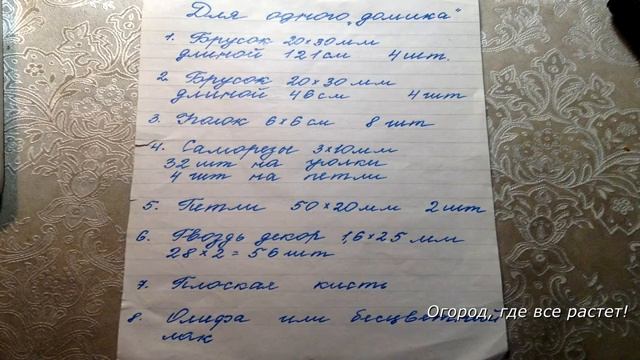 Для одного „домика“
1. Брусок 20×30мм
длиной 121см 4шт.
2. Брусок 20×30мм
длиной 46см 4шт
3. Уголок 6×6см 8шт
4. Саморезы 3×10мм
32шт на уголки
4шт на петли
5. Петли 50×20мм 2шт
6. Гвоздь декор 1,6×25мм
28×2=56шт
7. Плоская кисть
8. Олифа или бесцветный
лак
Огород, где все растет!